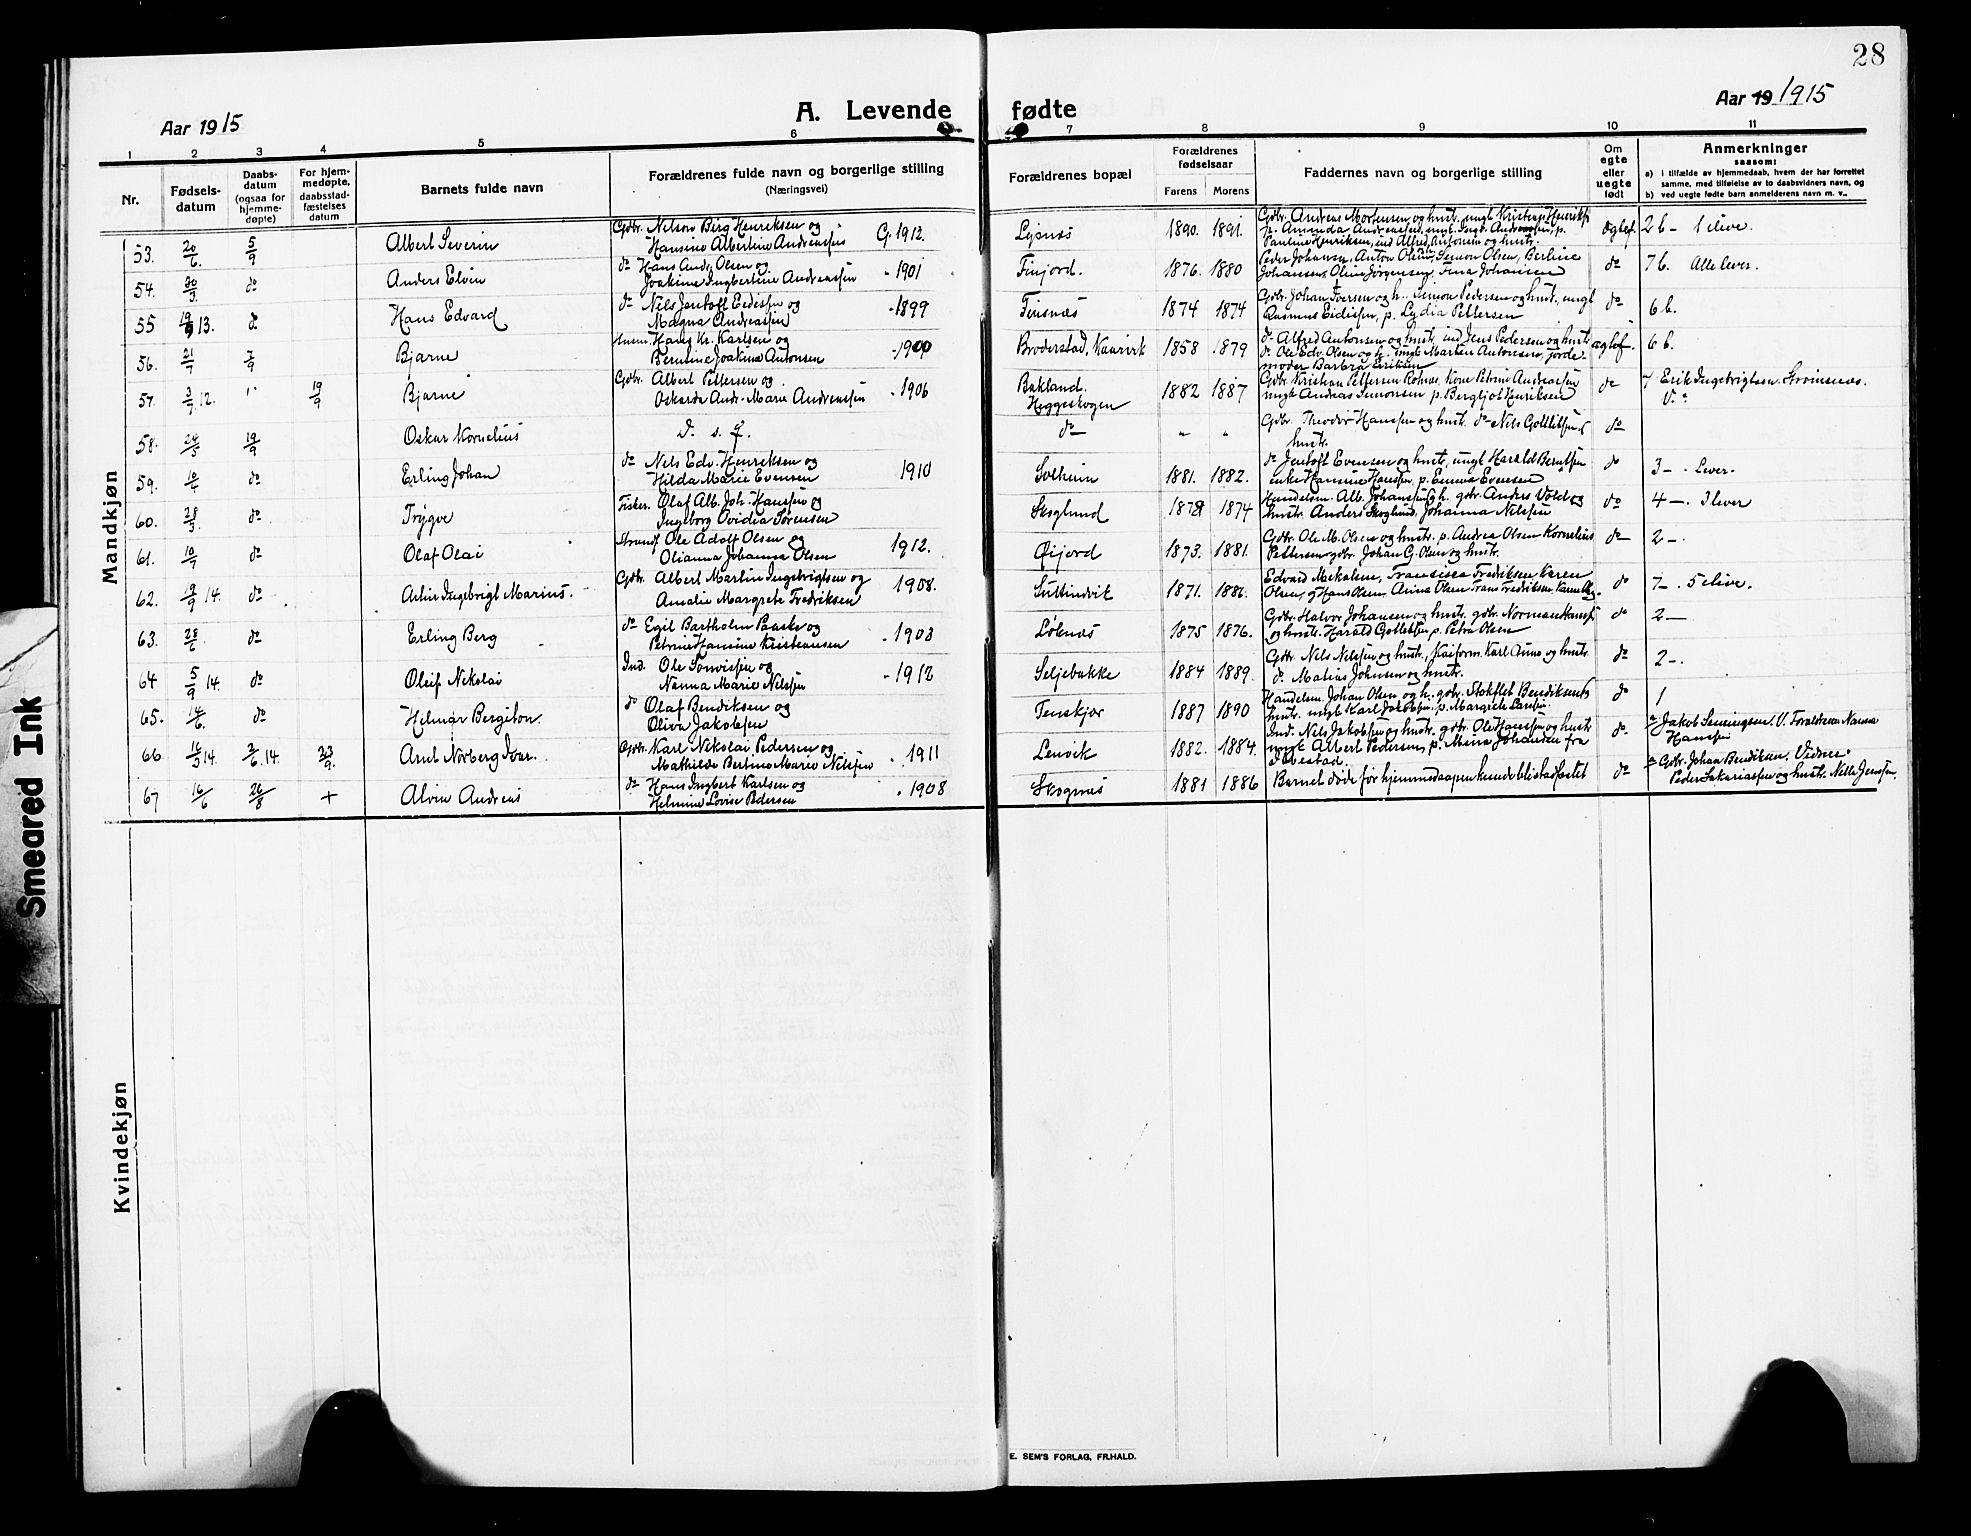 28
Aar 1915
A. Levende fødte
Aar 19 1915
1 2 3 4 5 6 7 8 9 10 11
Nr.
Fødsels-
datum
Daabs-
datum
(ogsaa for
hjemme-
døpte)
For hjem-
medøpte,
daabsstad-
fæstelses
datum
Barnets fulde navn
Forældrenes fulde navn og borgerlige stilling
(Næringsvei)
Forældrenes bopæl
Forældrenes
fødselsaar
Farens Morens
Faddernes navn og borgerlige stilling
Om
egte
eller
uegte
født
Anmerkninger
saasom:
a) i tilfælde av hjemmedaab, hvem der har forrettet
samme, med tilføielse av to daabsvidners navn, og
b) ved uegte fødte barn anmelderens navn m. v..
Mandkjøn
53. 20/6. 5/9 Albert Severin
Gdbr. Nelson Berg Henriksen og
Hansine Albertine Andreassen G. 1912.
Lysnæs 1890. 1891.
Gdbr. Andreas Mortensen og hustr. ungk
Pauline Henriksen, ind Alfred Antonsen og hustr.
2 b - 1 ilive.
54. 30/3. do Anders Elvin
do Hans Andr. Olsen og
Joakime Ingbertine Andreassen - 1901
Finjord. 1876. 1880
Peder Johansen, Anton Olsen, Simon Olsen, Berline
Johansen, Oline Jørgensen, Tina Johansen
do 7 b. Alle lever.
55 13. do Hans Edvard
do Nils Jentoft Eedessen og
Magna Andreassen - 1899
Finsnæs 1874 1874
Gdbr. Johan Iversen og h. Simon Pedersen og hustr. ungk
Rasmus Eidissen, p. Lydia Pettersen
do 6 b.
56. 21/7 7/9 Bjarne
Husm. Hans Kr. Karlsen og
Berntine Joakime Antonsen - 1900
Broderstad, Kaarvik 1858 1879
do Alfred Antonsen og hustr. ind Jens Pedersen og hustr
do Ole Edv. Olsen og h. ungk Marten Antonsen, jorde-
moder Barbra Eriksen
6 b.
57. 3/7 12. " 19/9 Bjarne
Gdbr. Albert Pettersen og
Oskarda Andr. Marie Andreassen - 1906
Bukland.
Heggeskogen
1882 1887
Gdbr. Kristian Pettersen Rofnæs, Kone Petrine Andreassen
ungk Andreas Simonsen p. Bergljot Henriksen
do 7 Erik Ingebrigtsen. Strømsnæs.
V. "
58. 24/5 19/9 Oskar Kornelius
D. s. f.
do " "
Gdbr. Theodor Hanssen og hustr. do Nils Gotlibsen og
hustr.
do
59. 10/4 do Erling Johan
do Nils Edv. Henriksen og
Hilda Marie Evensen 1910
Solheim 1881. 1882.
do Jentoft Evensen og hustr, ungk Harald Berntsen
enke Hansine Hanssen, p. Emma Evensen
do 3 - . Lever.
60. 28/3. do Trygve
Fisker. Olaf Alb. Joh. Hanssen og
Ingeborg Ovidia Sørensen
Skoglund 1874
Handelsm. Alb. Johanssen og h. gdbr. Anders Vold og
hustr. Anders Skoglund, Johanna Nilssen
do 4 - . 3 lever
61. 10/7 do Olaf Olai
Strandf. Ole Adolf Olsen og
Olianna Johanna Olsen 1912.
Øijord 1873. 1881.
Gdbr. Ole M. Olsen og hustr. p. Andrea Olsen Kornelius
Pettersen gdbr. Johan G. Olsen og hustr.
do 2 - .
62. 19/9 14. do Arvin Ingebrigt Marius.
Gdbr. Albert Martin Ingebrigtsen og
Amalie Margrete Fredriksen 1908.
Sultindvik 1871. 1886.
Edvard Mikalsen, Fransisca Fredriksen Karen
Olsen, Hans Olsen. Anna Olsen Frans Fredriksen
do 7 - . 5 ilive.
63. 28/6. do Erling Berg
do Egil Bartholm Paaske og
Petrine Hansine Kristensen - 1903
Løknæs 1875 1876.
Gdbr. Halvor Johansen og hustr. gdbr. Norman
og hustr. Harald Gotlibsen p. Petra Olsen
do 2 -
64 5/9 14. do Oleif Nikolai
Ind. Ole Tonvissen og
Nanna Marie Nilssen - 1912
Seljebakke 1884 1889.
Gdbr. Nils Nilssen og hustr., Kaiform. Karl Anno og hustr.
do Matias Johnsen og hustr.
do 2 - .
65. 14/6. do Helmer Bergiton.
do Olaf Bendiksen og
Oliva Jakobsen
Tenskjær 1887 1890
Handelsm Johan Olsen og h. gdbr. Stokflet Bendiksen og
hustr. ungk Karl Jakobsen p. Margrete Larssen.
do 1
66 16/3 14. 2/6. 14. 23/9. Arnt Norberg Ivar.
Gdbr. Karl Nikolai Pedersen og
Mathilde Bertine Marie Nilssen . 1911
Lenvik 1882. 1884.
Ind. Nils Jakobsen og hustr. gdbr. Ole Hanssen og hustr
ungk Albert Pedersen, p. Mina Johansen fra
do.
Jakob Henningsen. V. Forældrene Nanna
Hanssen
67 16/6 26/8 + Alvin Andreas
do Hans Ingbert Karlsen og
Helmine Lovise Pedersen . 1908
Skognæs 1881 1886
Barnet døde før hjemmedaapen kunde bli stadfæstet
do
Gdbr. Johan Bendiksen. Vidner:
Peder Sakariassen og hustr. Nella Jenssen.
Kvindekjøn
E. SEM'S FORLAG, FR.HALD.
Smeared Ink